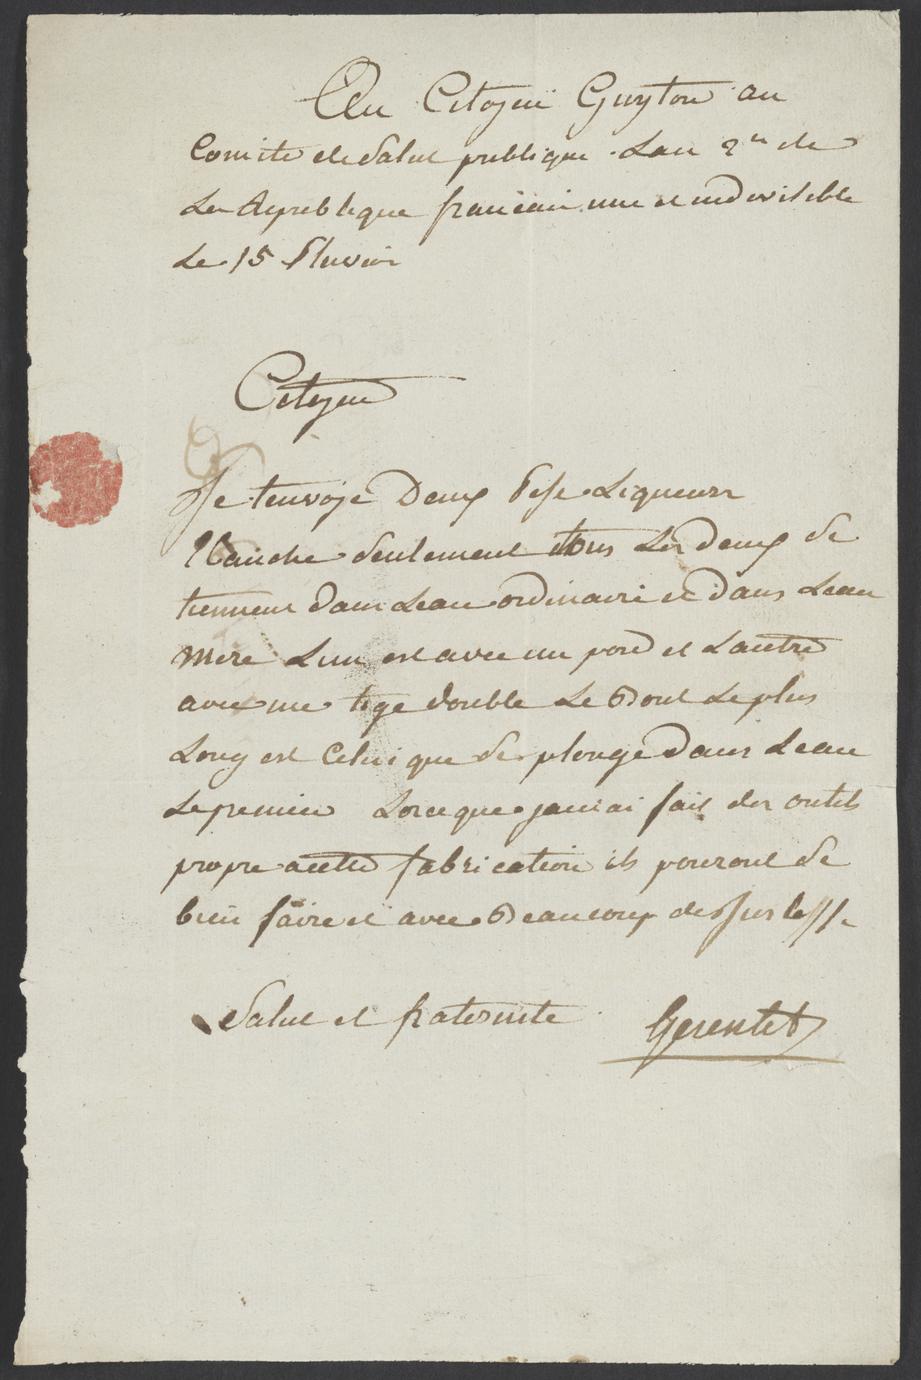 Au Citoyen Guyton au
Comite de Salut publique. Lan 2me de
La Republique francaise une et indivisible
Le 15 Pluviose
Citoyen
Je tenvoje Deux Pese Liqueurs
Ebauche Seulement tous Les deux Se
tiennent dans Leau ordinaire et dans Leau
mere Lun est avec un poid et Lautre
avec une tige double Le Bout Le plus
Long est Celui que Se plonge Dans Leau
Le premier Lorceque jaurai fait des outils
propre acette fabrication ils pouront Se
bien faire et avec Beaucoup de
Salut et fraternite Gerentet